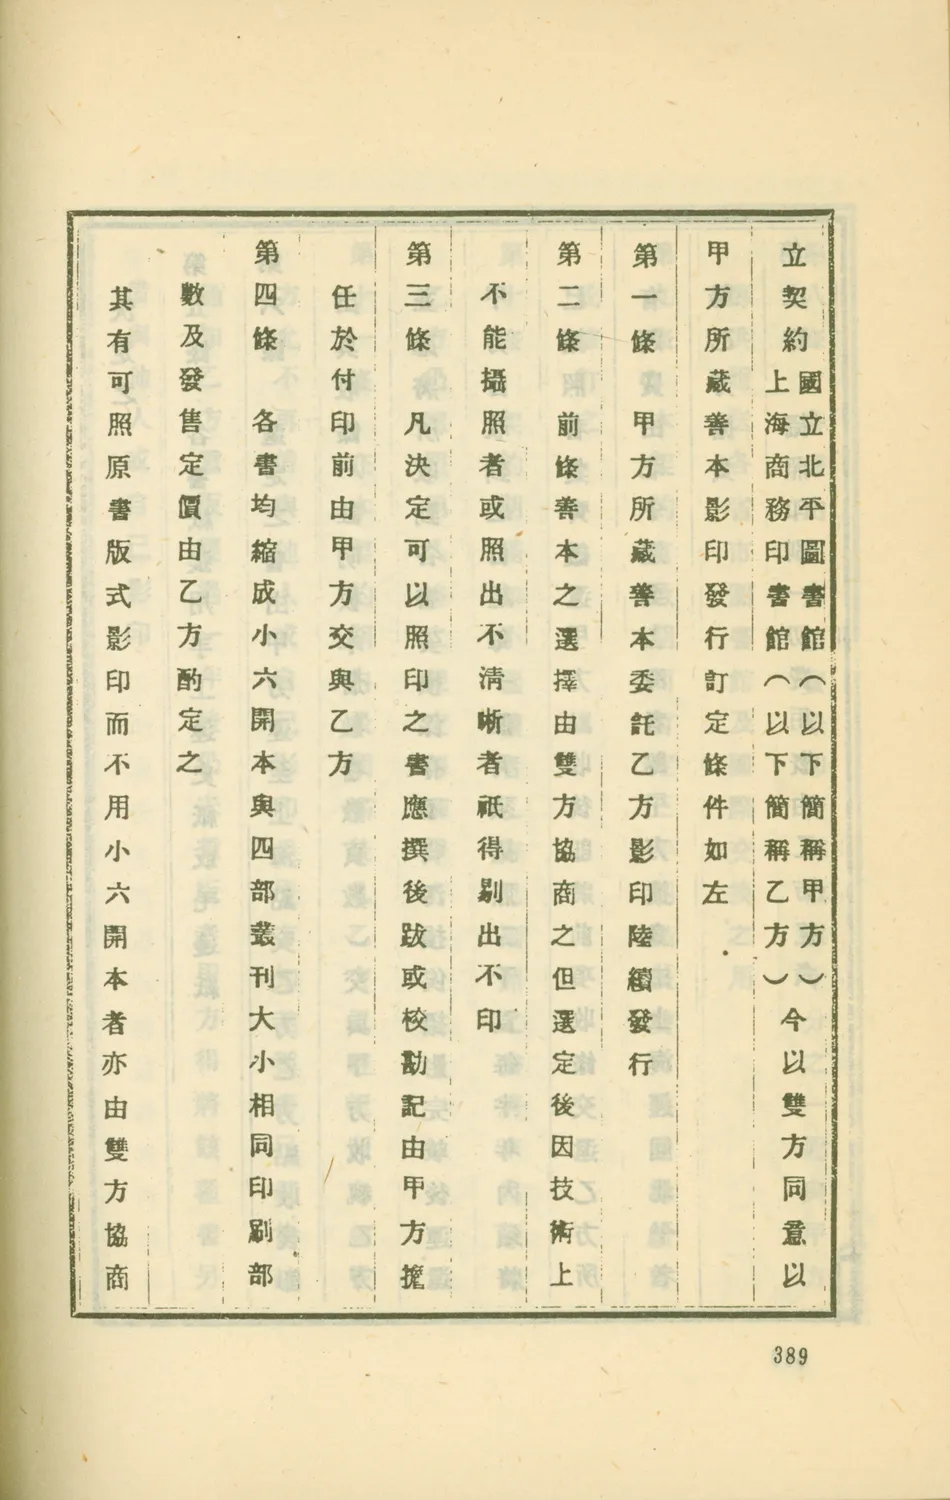 立契約國立北平圖書館（以下簡稱甲方）上海商務印書館（以下簡稱乙方）今以雙方同意以
甲方所藏善本影印發行訂定條件如左
第一條　甲方所藏善本委託乙方影印陸續發行
第二條　前條善本之選擇由雙方協商之但選定後因技術上
不能攝照者或照出不清晰者祇得剔出不印
第三條　凡決定可以照印之書應撰後跋或校勘記由甲方擔
任於付印前由甲方交與乙方
第四條　各書均縮成小六開本與四部叢刊大小相同印刷部
數及發售定價由乙方酌定之
其有可照原書版式影印而不用小六開本者亦由雙方協商
389